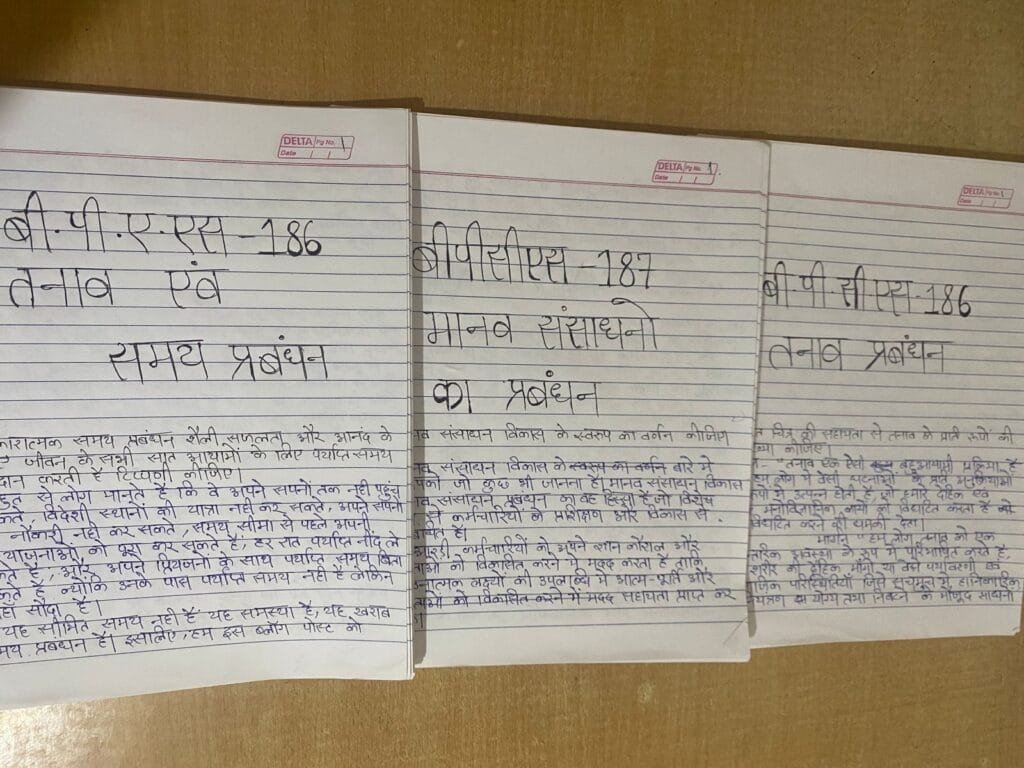 DELTA Pg No. 1
Date / /
बी.पी.ए.एस-186
तनाव एवं
समय प्रबंधन
समय प्रबंधन शैली सफलता और आनंद के
जीवन के सभी सात आयामों के लिए पर्याप्त समय
करता है टिप्पणी कीजिए।
से लोग मानते है कि वे अपने सपनों तक नही पहुंच
विदेशी स्थानों की यात्रा नही कर सकते, अपने सपनो
नौकरी नही कर सकते, समय सीमा से पहले अपनी
को पूरा कर सकते है, हर रात पर्याप्त नींद ले
है, और अपने प्रियजनों के साथ पर्याप्त समय बिता
है क्योंकि उनके पास पर्याप्त समय नही है लेकिन
सौदा है।
यह सीमित समय नही है यह समस्या है, यह खराब
प्रबंधन है। इसलिए, हम इस ब्लॉग पोस्ट को
DELTA Pg No. 1
Date / /
बीपीसीएस-187
मानव संसाधनो
का प्रबंधन
संसाधन विकास के स्वरुप का वर्णन कीजिए
संसाधन विकास के स्वरुप का वर्णन बारे में
जो कुछ भी जानना है। मानव संसाधन विकास
संसाधन प्रबंधन का वह हिस्सा है जो विशेष
कर्मचारियों के प्रशिक्षण और विकास से
है।
कर्मचारियों को अपने ज्ञान कौशल और
को विकसित करने में मदद करता है ताकि
लक्ष्यों की उपलब्धि में आत्म-पूर्ति और
को विकसित करने में मदद सहायता प्राप्त कर
DELTA Pg No. 1
Date / /
बी.पी.सी.एस-186
तनाव प्रबंधन
चित्र की सहायता से तनाव के प्रति रूपों की
कीजिए।
तनाव एक ऐसी बहुआयामी प्रक्रिया है
लोग में वैसी घटनाओं के प्रति
में उत्पन्न होती है, जो हमारे दैहिक एवं
मनोवैज्ञानिक कार्यो को विघटित करता है
विघटित करने की धमकी देता।
हम लोग को एक
अवस्था के रूप में परिभाषित करते है,
शरीर की दैहिक माँगों या वैसे पर्यावरणी एवं
परिस्थितियाँ जिसे सचमुच में हानिकारिक
योग्य तथा निबटने के मौजूद साधनो